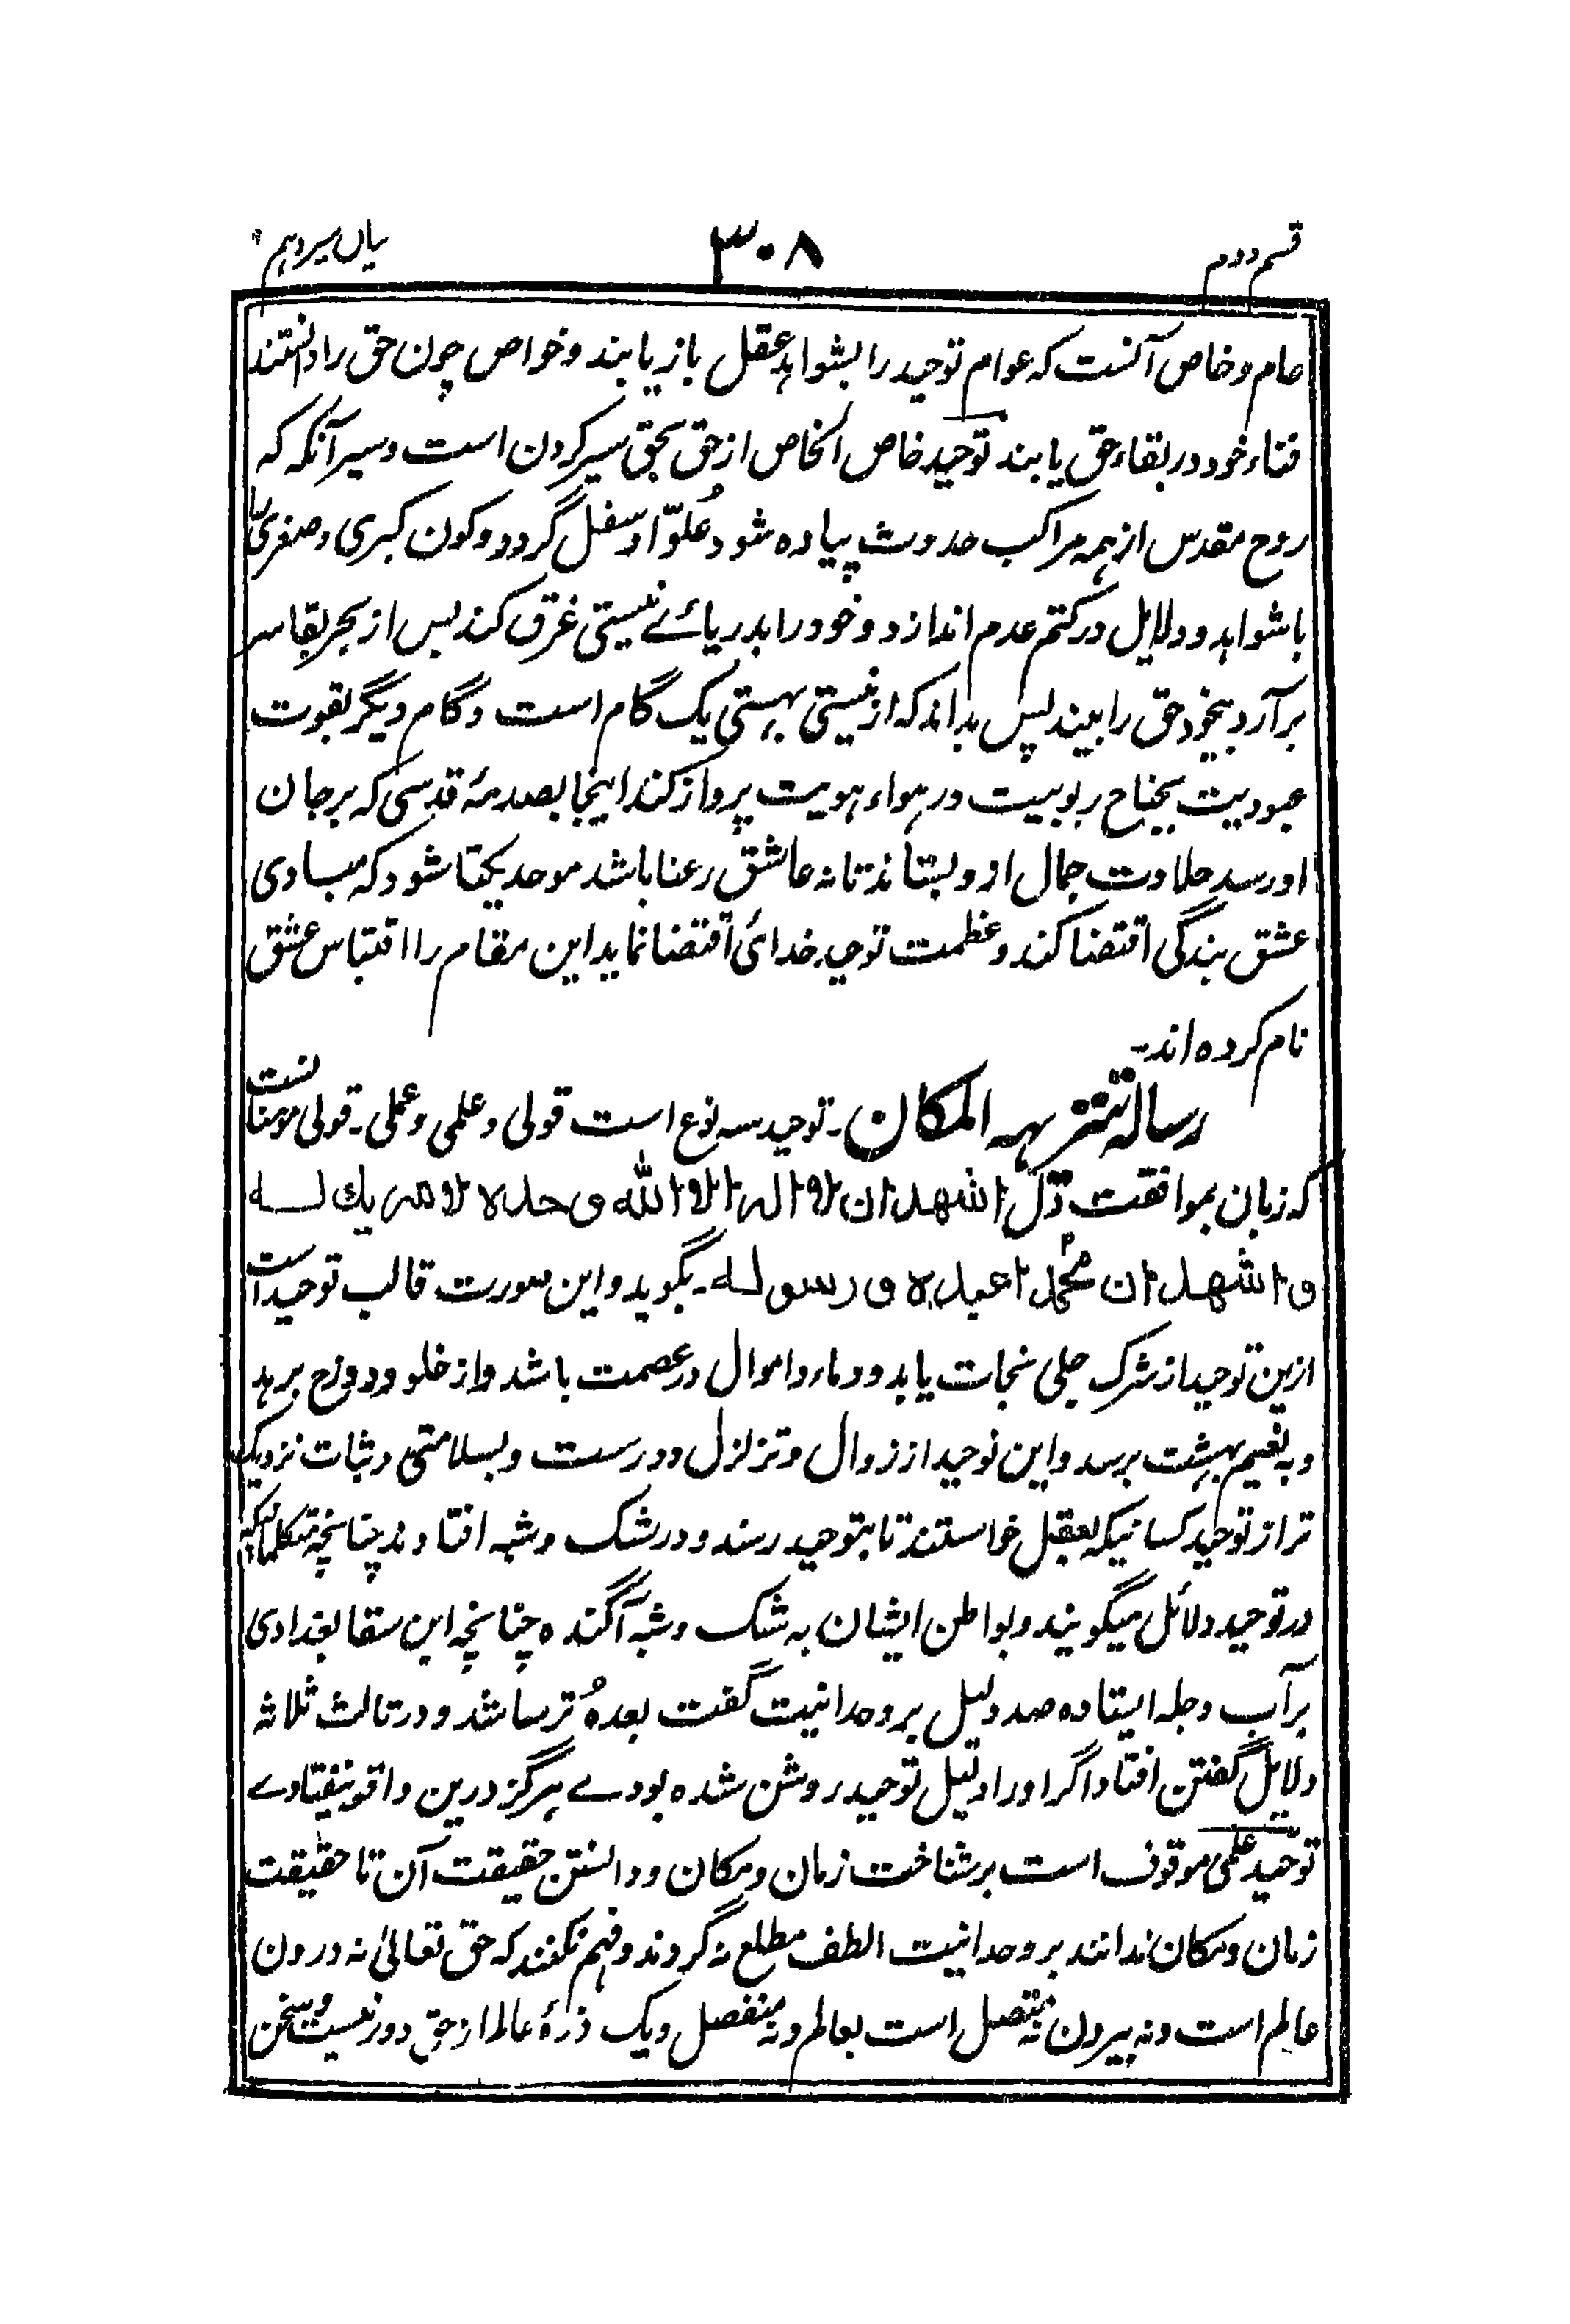 قسم دوم ۳۰۸ بیان سیزدهم
عام و خاص آنست که عوام توحید را بشواهد عقل باز یابند و خواص چون حق را دانستند
فناء خود در بقاء حق یابند توحید خاص الخاص از حق بحق سیر کردن است و سیر آنکه که
روح مقدس از همه مراکب حدوث پیاده شود و عُلوّ او سفل گردد و کون کبری و صغری را
با شواهد و دلایل در کتم عدم اندازد و خود را بدریائے نیستی غرق کند پس از بحر بقا سر
برآرد بیخود حق را بیند پس بداند که از نیستی بهستی یک گام است و گام دیگر بقوت
عبودیت بجناح ربوبیت در هواء هویت پرواز کند اینجا بصدمهٔ قدسی که بر جان
او رسد حلاوت جمال ازو بستاند تا نه عاشق رعنا باشد موحد یکتا شود که مبادی
عشق بندگی اقتضا کند و عظمت توحید خدائی اقتضا نماید این مقام را اقتباس عشق
نام کرده اند۔
رساله تنزیهه المکان۔ توحید سه نوع است قولی و علمی و عملی۔ قولی مو
که زبان بموافقت دل اشهد ان لا اله الا الله وحده لا شریك له
و اشهد ان محمدا عبده و رسوله۔ بگوید و این صورت قالب توحید است
ازین توحید از شرک جلی نجات یابد و دماء و اموال در عصمت باشد و از خلود دوزخ برهد
و به نعیم بهشت برسد و این توحید از زوال و تزلزل دورست و بسلامتی و ثبات نزدیک
تر از توحید کسانیکه بعقل خواستند تا بتوحید رسند و در شک و شبه افتادند چنانچه متکلمانیکه
در توحید دلائل میگویند و بواطن ایشان به شک و شبه آگنده چنانچه ابن سقا بغدادی
بر آب دجله ایستاده صد دلیل بر وحدانیت گفت بعدهُ ترسا شد و در ثالث ثلاثه
دلایل گفتن افتاد اگر او را دلیل توحید روشن شده بودے هرگز درین واقعه نیفتادے
توحید علمی موقوف است بر شناخت زمان و مکان و دانستن حقیقت آن تا حقیقت
زمان و مکان ندانند بر وحدانیت الطف مطلع نه گردند و فهم نکنند که حق تعالیٰ نه درون
عالم است و نه بیرون نه متصل است بعالم و نه منفصل و یک ذرهٔ عالم از حق دور نیست و سخن